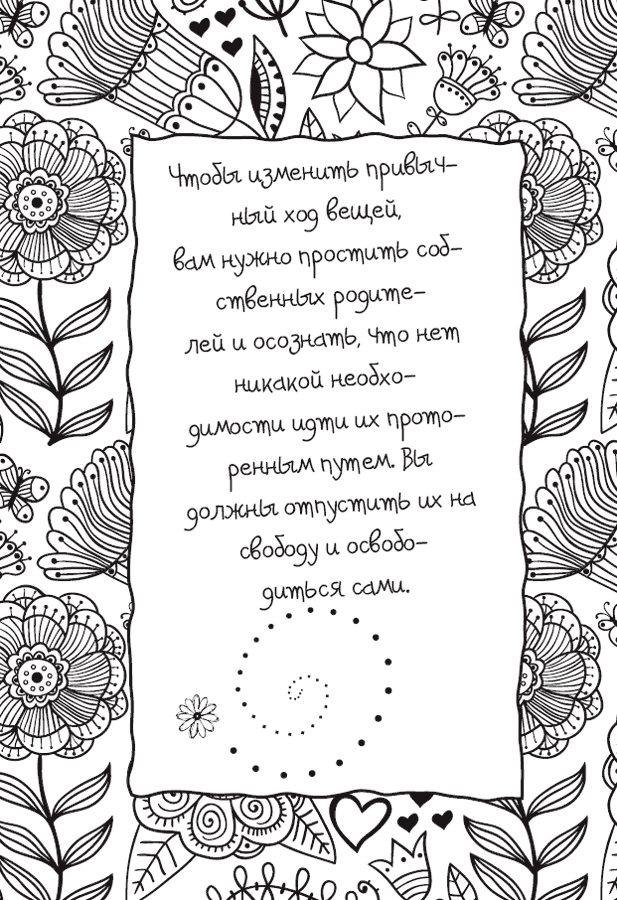 Чтобы изменить привыч-
ный ход вещей,
вам нужно простить соб-
ственных родите-
лей и осознать, что нет
никакой необхо-
димости идти их прото-
ренным путем. Вы
должны отпустить их на
свободу и освобо-
диться сами.